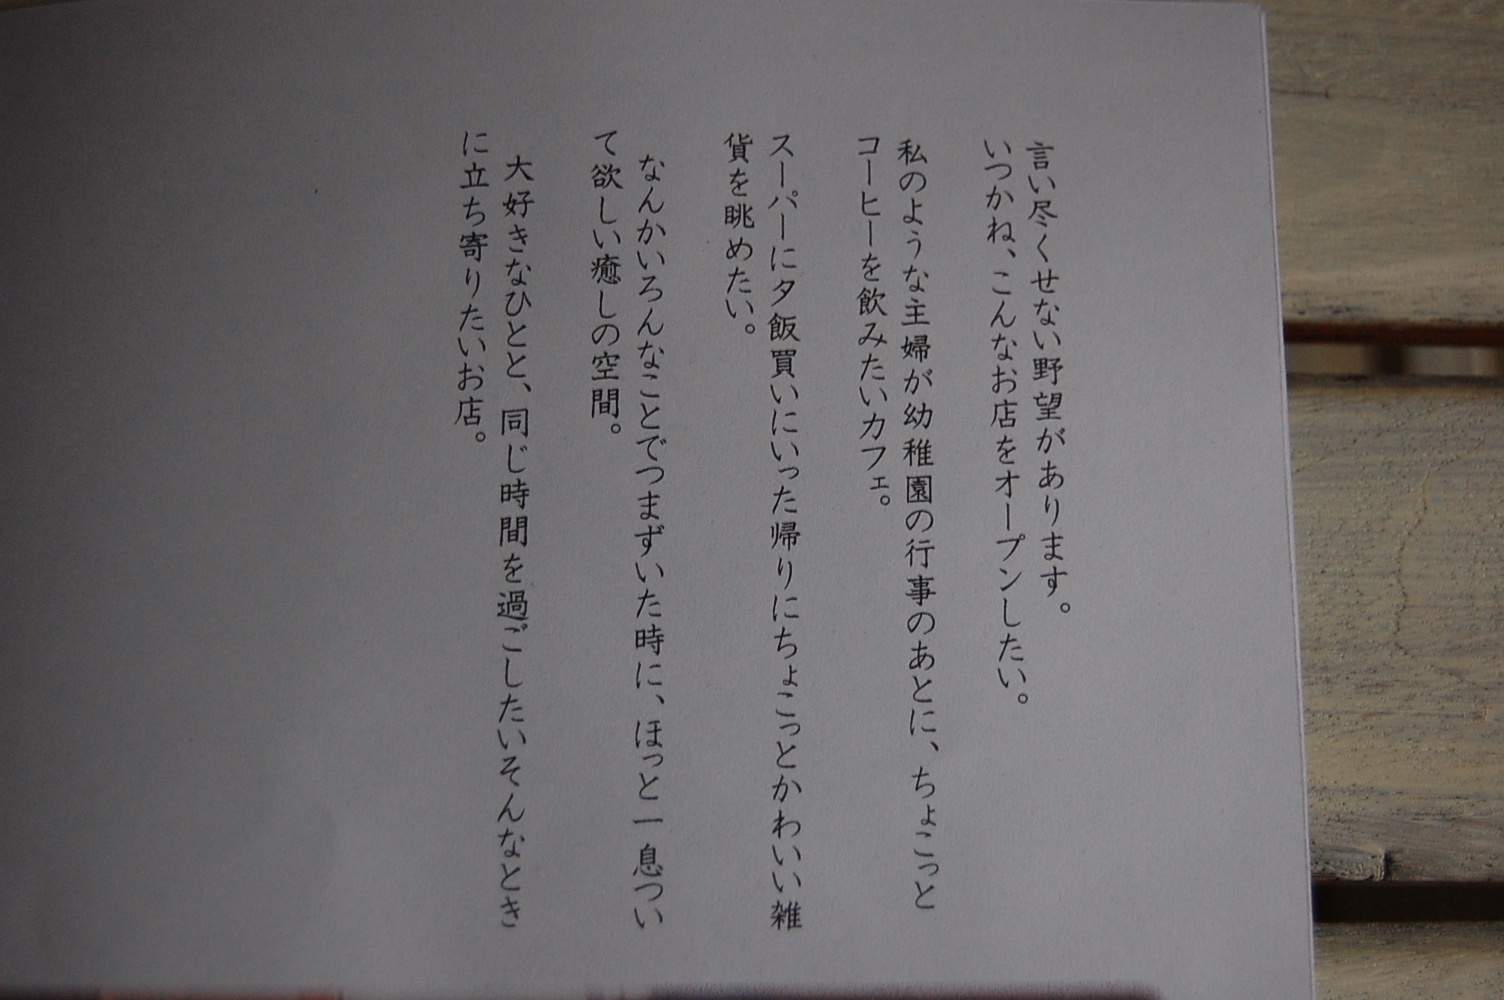 言い尽くせない野望があります。
いつかね、こんなお店をオープンしたい。
私のような主婦が幼稚園の行事のあとに、ちょこっと
コーヒーを飲みたいカフェ。
スーパーに夕飯買いにいった帰りにちょこっとかわいい雑
貨を眺めたい。
なんかいろんなことでつまずいた時に、ほっと一息つい
て欲しい癒しの空間。
大好きなひとと、同じ時間を過ごしたいそんなとき
に立ち寄りたいお店。